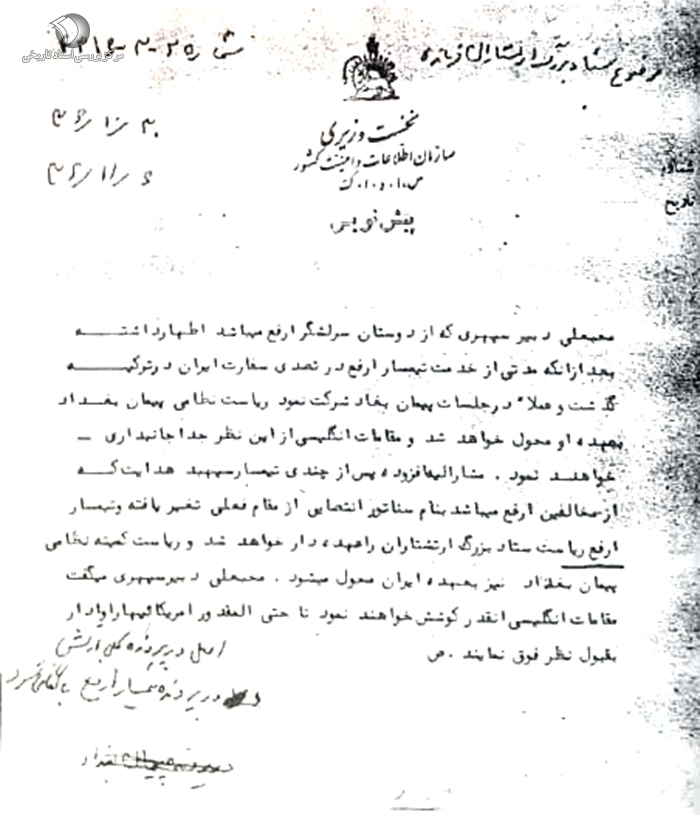 مرکز بررسی اسناد تاریخی
موضوع ستاد بزرگ ارتشتاران
نخست وزیری
سازمان اطلاعات و امنیت کشور
س.ا.و.ا.ک
شماره
تاریخ
پیش نویس
محمعلی دبیر سپهری که از دوستان سرلشگر ارفع میباشد اظهارداشته
بعد ازآنکه مدتی از خدمت تیمسار ارفع در تصدی سفارت ایران در ترکیه
گذشت و عملا" در جلسات پیمان بغداد شرکت نمود ریاست نظامی پیمان بغداد
بعهده او محول خواهد شد و مقامات انگلیسی از این نظر جدا جانبداری ــ
خواهند نمود . مشارالیه افزوده پس از چندی تیمسار سپهبد هدایت که
از مخالفین ارفع میباشد بنام سناتور انتصابی از مقام فعلی تغییر یافته و تیمسار
ارفع ریاست ستاد بزرگ ارتشتاران را عهده دار خواهد شد و ریاست کمیته نظامی
پیمان بغداد نیز بعهده ایران محول میشود . محمعلی دبیر سپهری میگفت
مقامات انگلیسی آنقدر کوشش خواهند نمود تا حتی المقدور امریکائیها را وادار
بقبول نظر فوق نمایند . ص
اصل در پرونده کلی ارتش
در پرونده تیمسار ارفع بایگانی شود
بغداد